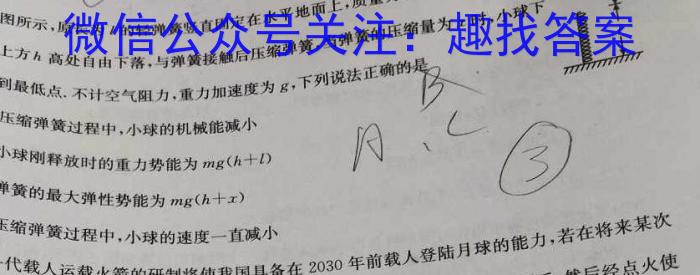 图所示,
的轻弹簧竖直固定在水平地面上,质量
微信公众号关注:趣找答案
上方 h 高处自由下落,与弹簧接触后压缩弹簧,
弹簧的压缩量为
时,小球下
到最低点.不计空气阻力,重力加速度为 g,下列说法正确的是
压缩弹簧过程中,小球的机械能减小
小球刚释放时的重力势能为 mg(h+l)
弹簧的最大弹性势能为 mg(h+x)
压缩弹簧过程中,小球的速度一直减小
一代载人运载火箭的研制将使我国具备在 2030 年前载人登陆月球的能力,若在将来某次
然后经点火使
A
B
C
3